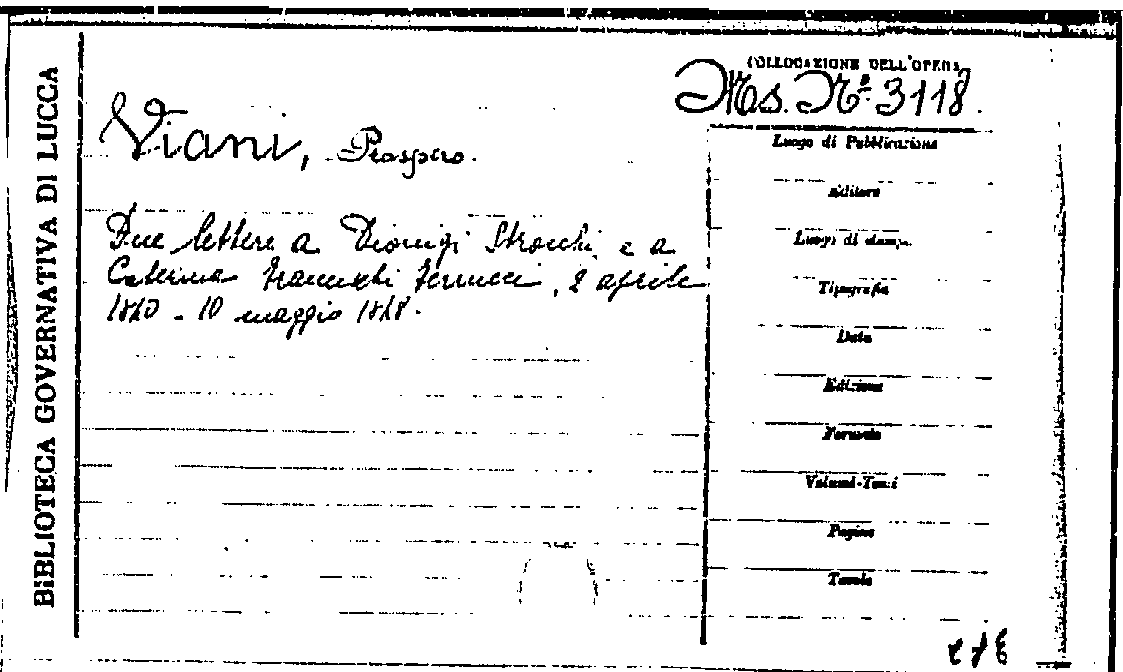 BIBLIOTECA GOVERNATIVA DI LUCCA
COLLOCAZIONE DELL'OPERA
Ms. Nº 3118.
Viani, Prospero.
Due lettere a Dionigi Strocchi, e a
Caterina Franceschi Ferrucci, 2 aprile
10 maggio 1848.
Luogo di Pubblicazione
Editore
Luogo di stampa
Tipografia
Data
Edizione
Formato
Volumi-Tomi
Pagine
Tavole